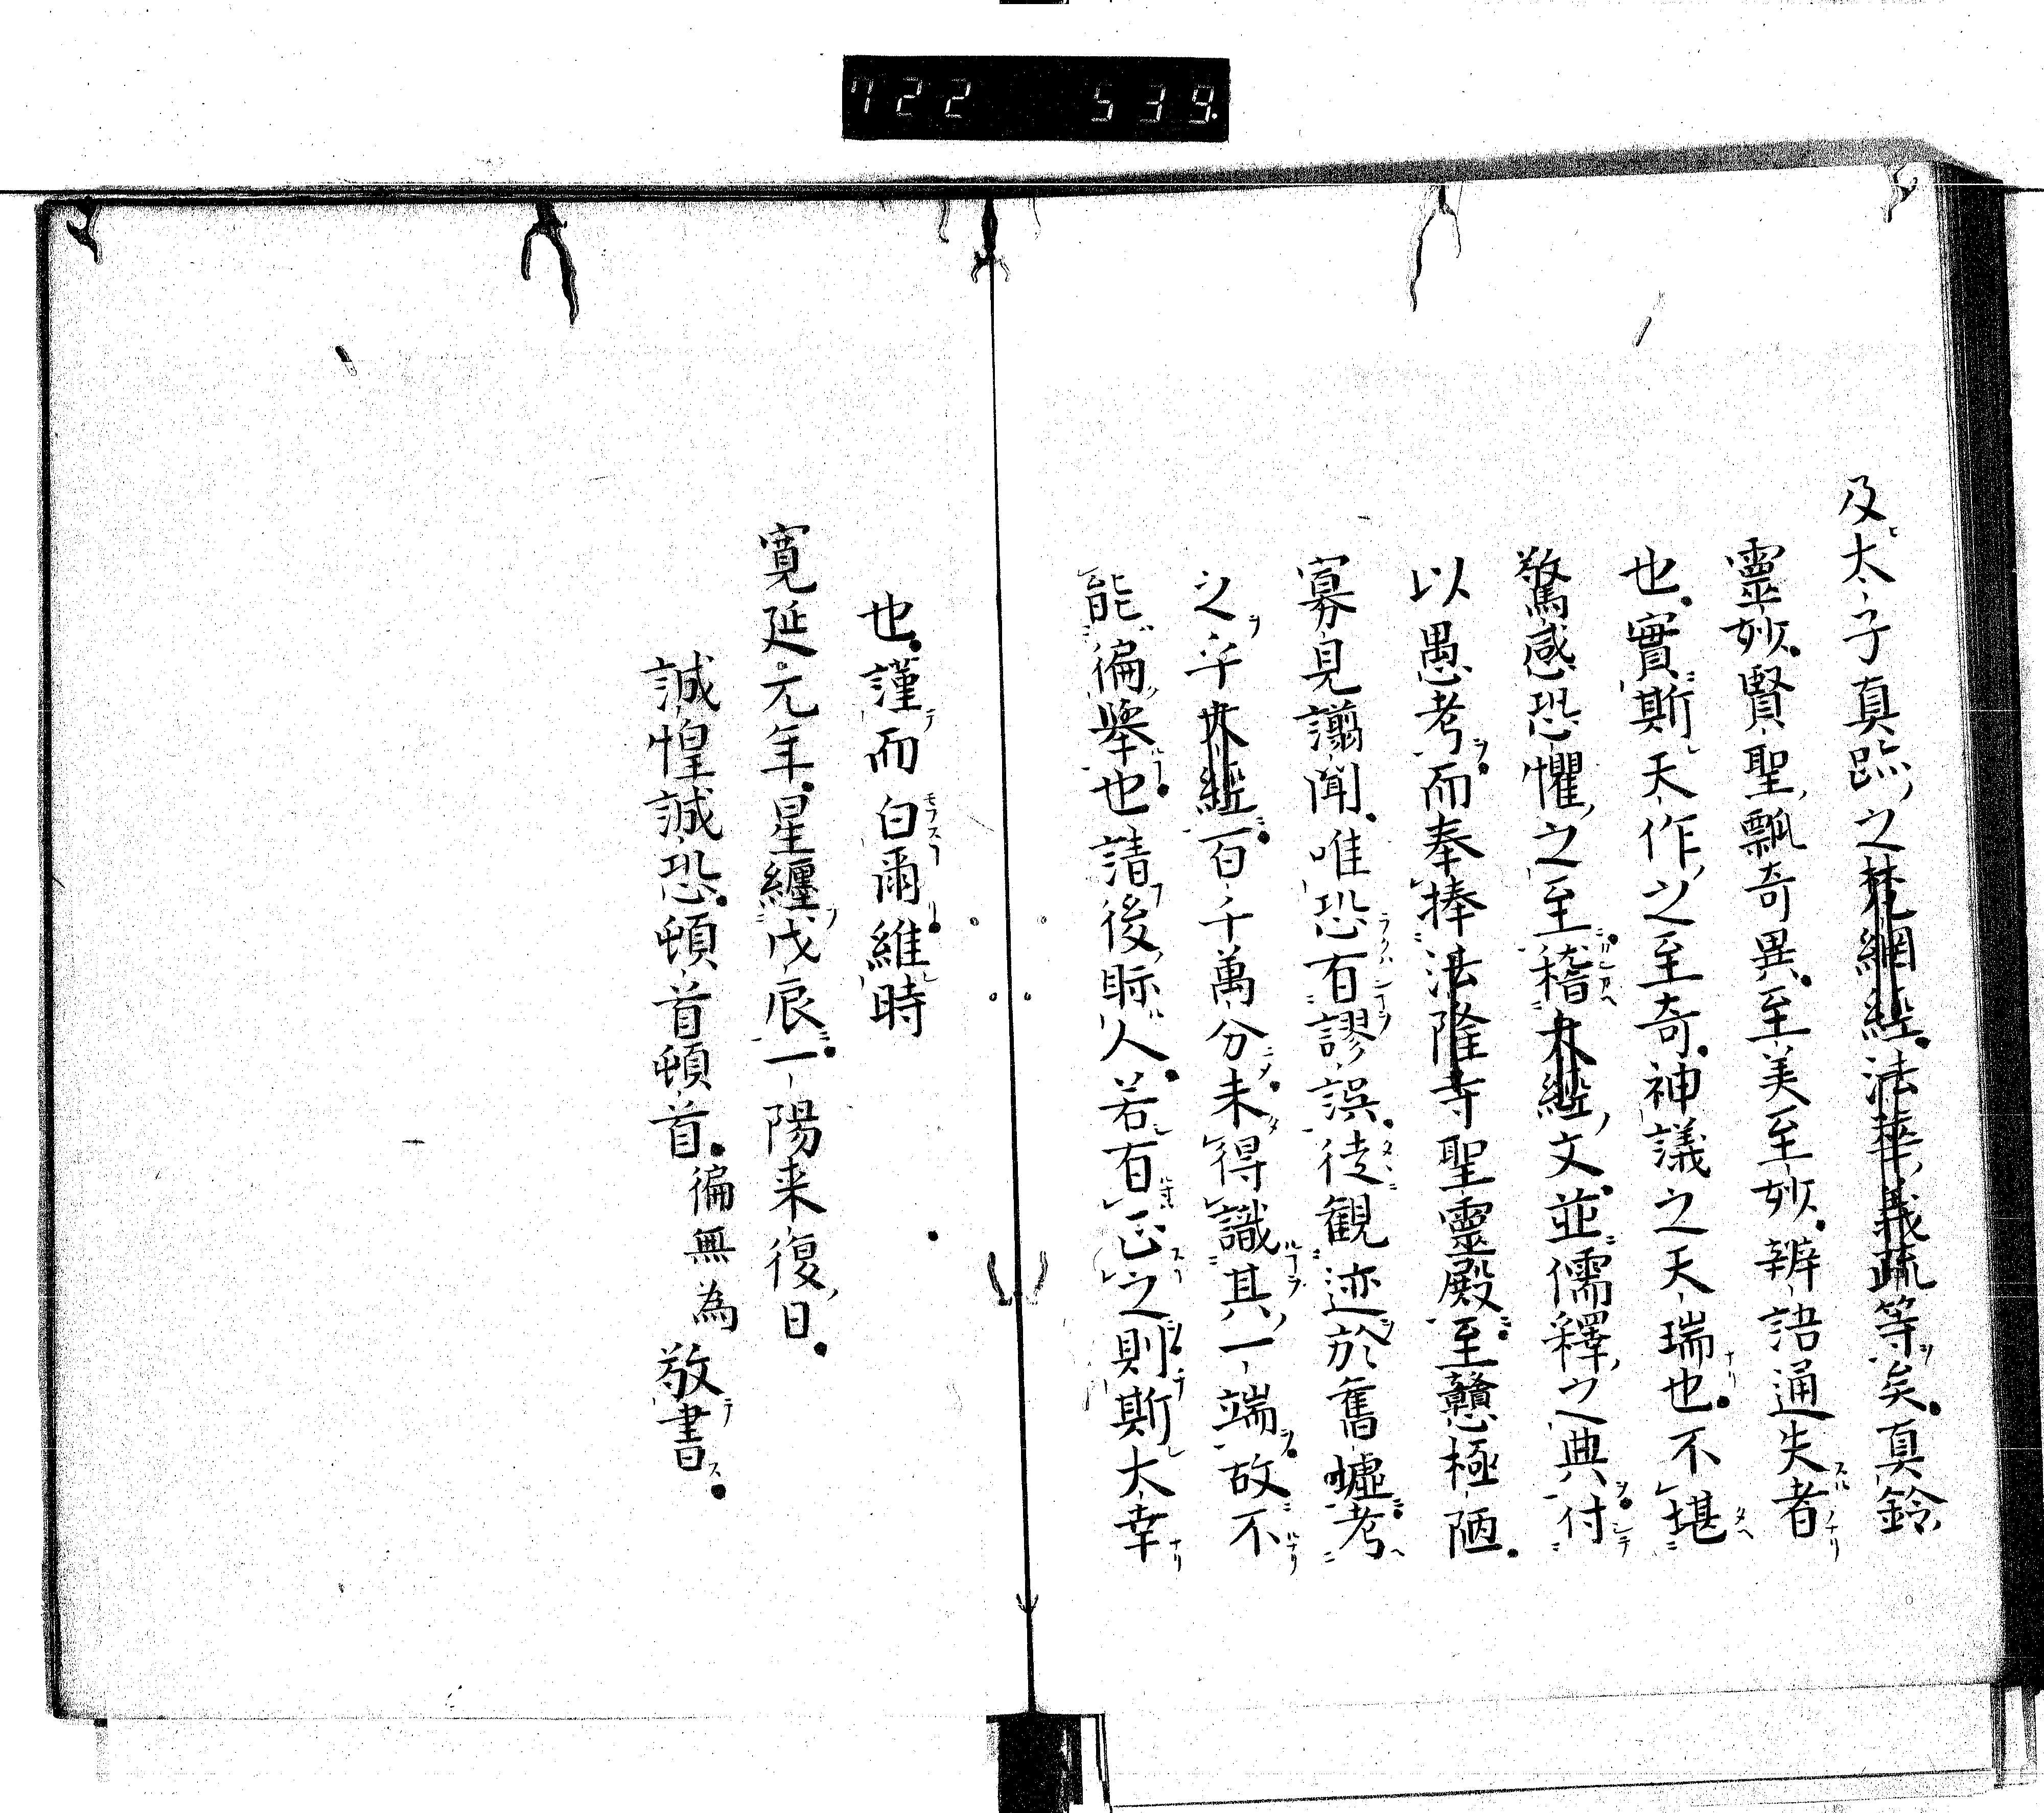 722 539.
及太子真跡之梵網經法華義疏等矣真鈴
靈妙賢聖飄奇異至美至妙辨語通失者
也實斯天作之至奇神議之天瑞也不堪
驚感恐懼之至稽大經文並儒釋之典付
以愚考而奉捧法隆寺聖靈殿至戇極陋
寡見謭聞唯恐有謬誤徒観迹於舊墟考
之乎大經百千萬分未得識其一端故不
能徧舉也請後眎人若有正之則斯大幸
也謹而白爾維時
寛延元年星纏戊辰一陽来復日
誠惶誠恐頓首頓首徧無為敬書